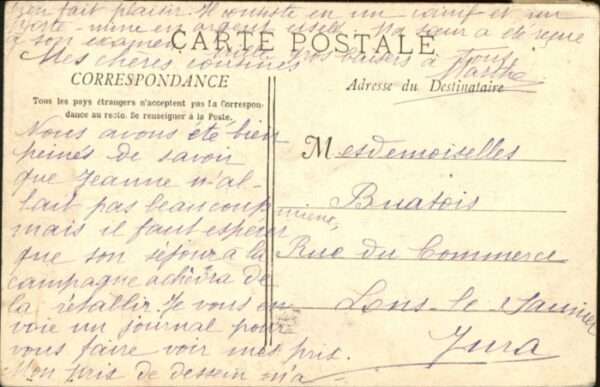 bien fait plaisir. Il consiste en un canif et un
porte-mine en argent ciselé. Ma sœur a été reçue
à son examen. Gros baisers à tous
Marthe
CARTE POSTALE
CORRESPONDANCE
Tous les pays étrangers n'acceptent pas la Correspon-
dance au recto. Se renseigner à la Poste.
Mes chères cousines
Nous avons été bien
peinés de savoir
que Jeanne n'al-
lait pas beaucoup mieux,
mais il faut espérer
que son séjour à la
campagne achèvra de
la rétablir. Je vous en
voie un journal pour
vous faire voir mes prix.
Mon prix de dessein m'a
Adresse du Destinataire
Mesdemoiselles
Buatois
Rue du Commerce
Lons-le-Saunier
Jura